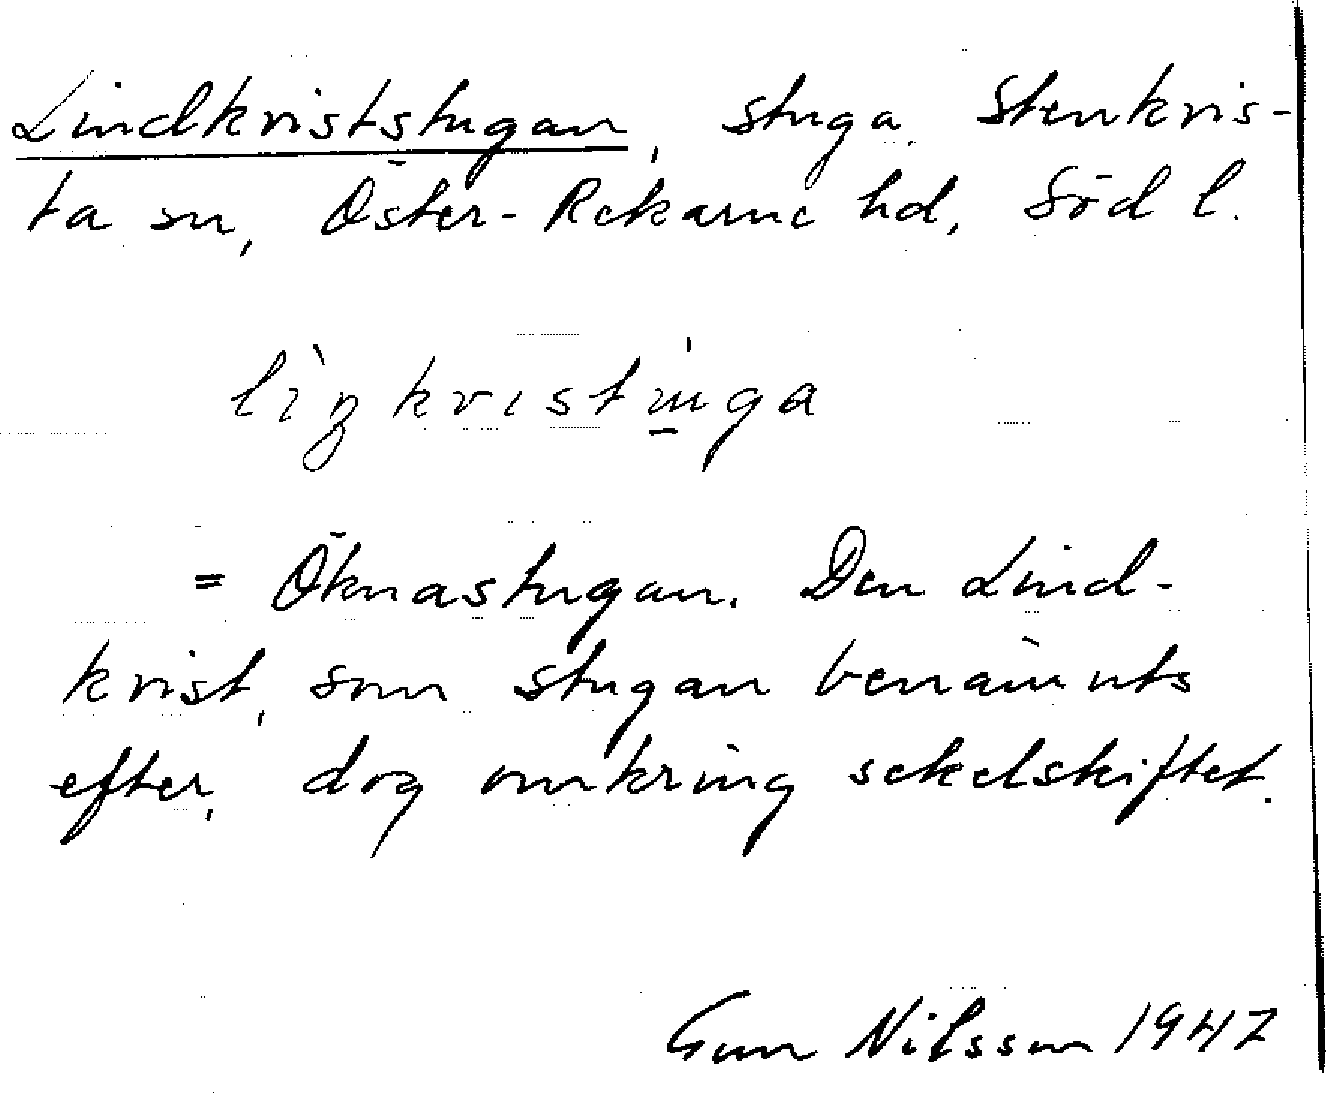 Lindkriststugan, stuga, Stenkvis-
ta sn, Öster-Rekarne hd, Söd l.
= Öknastugan. Den Lind-
krist, som stugan benämnts
efter, dog omkring sekelskiftet.
Gun Nilsson 1947